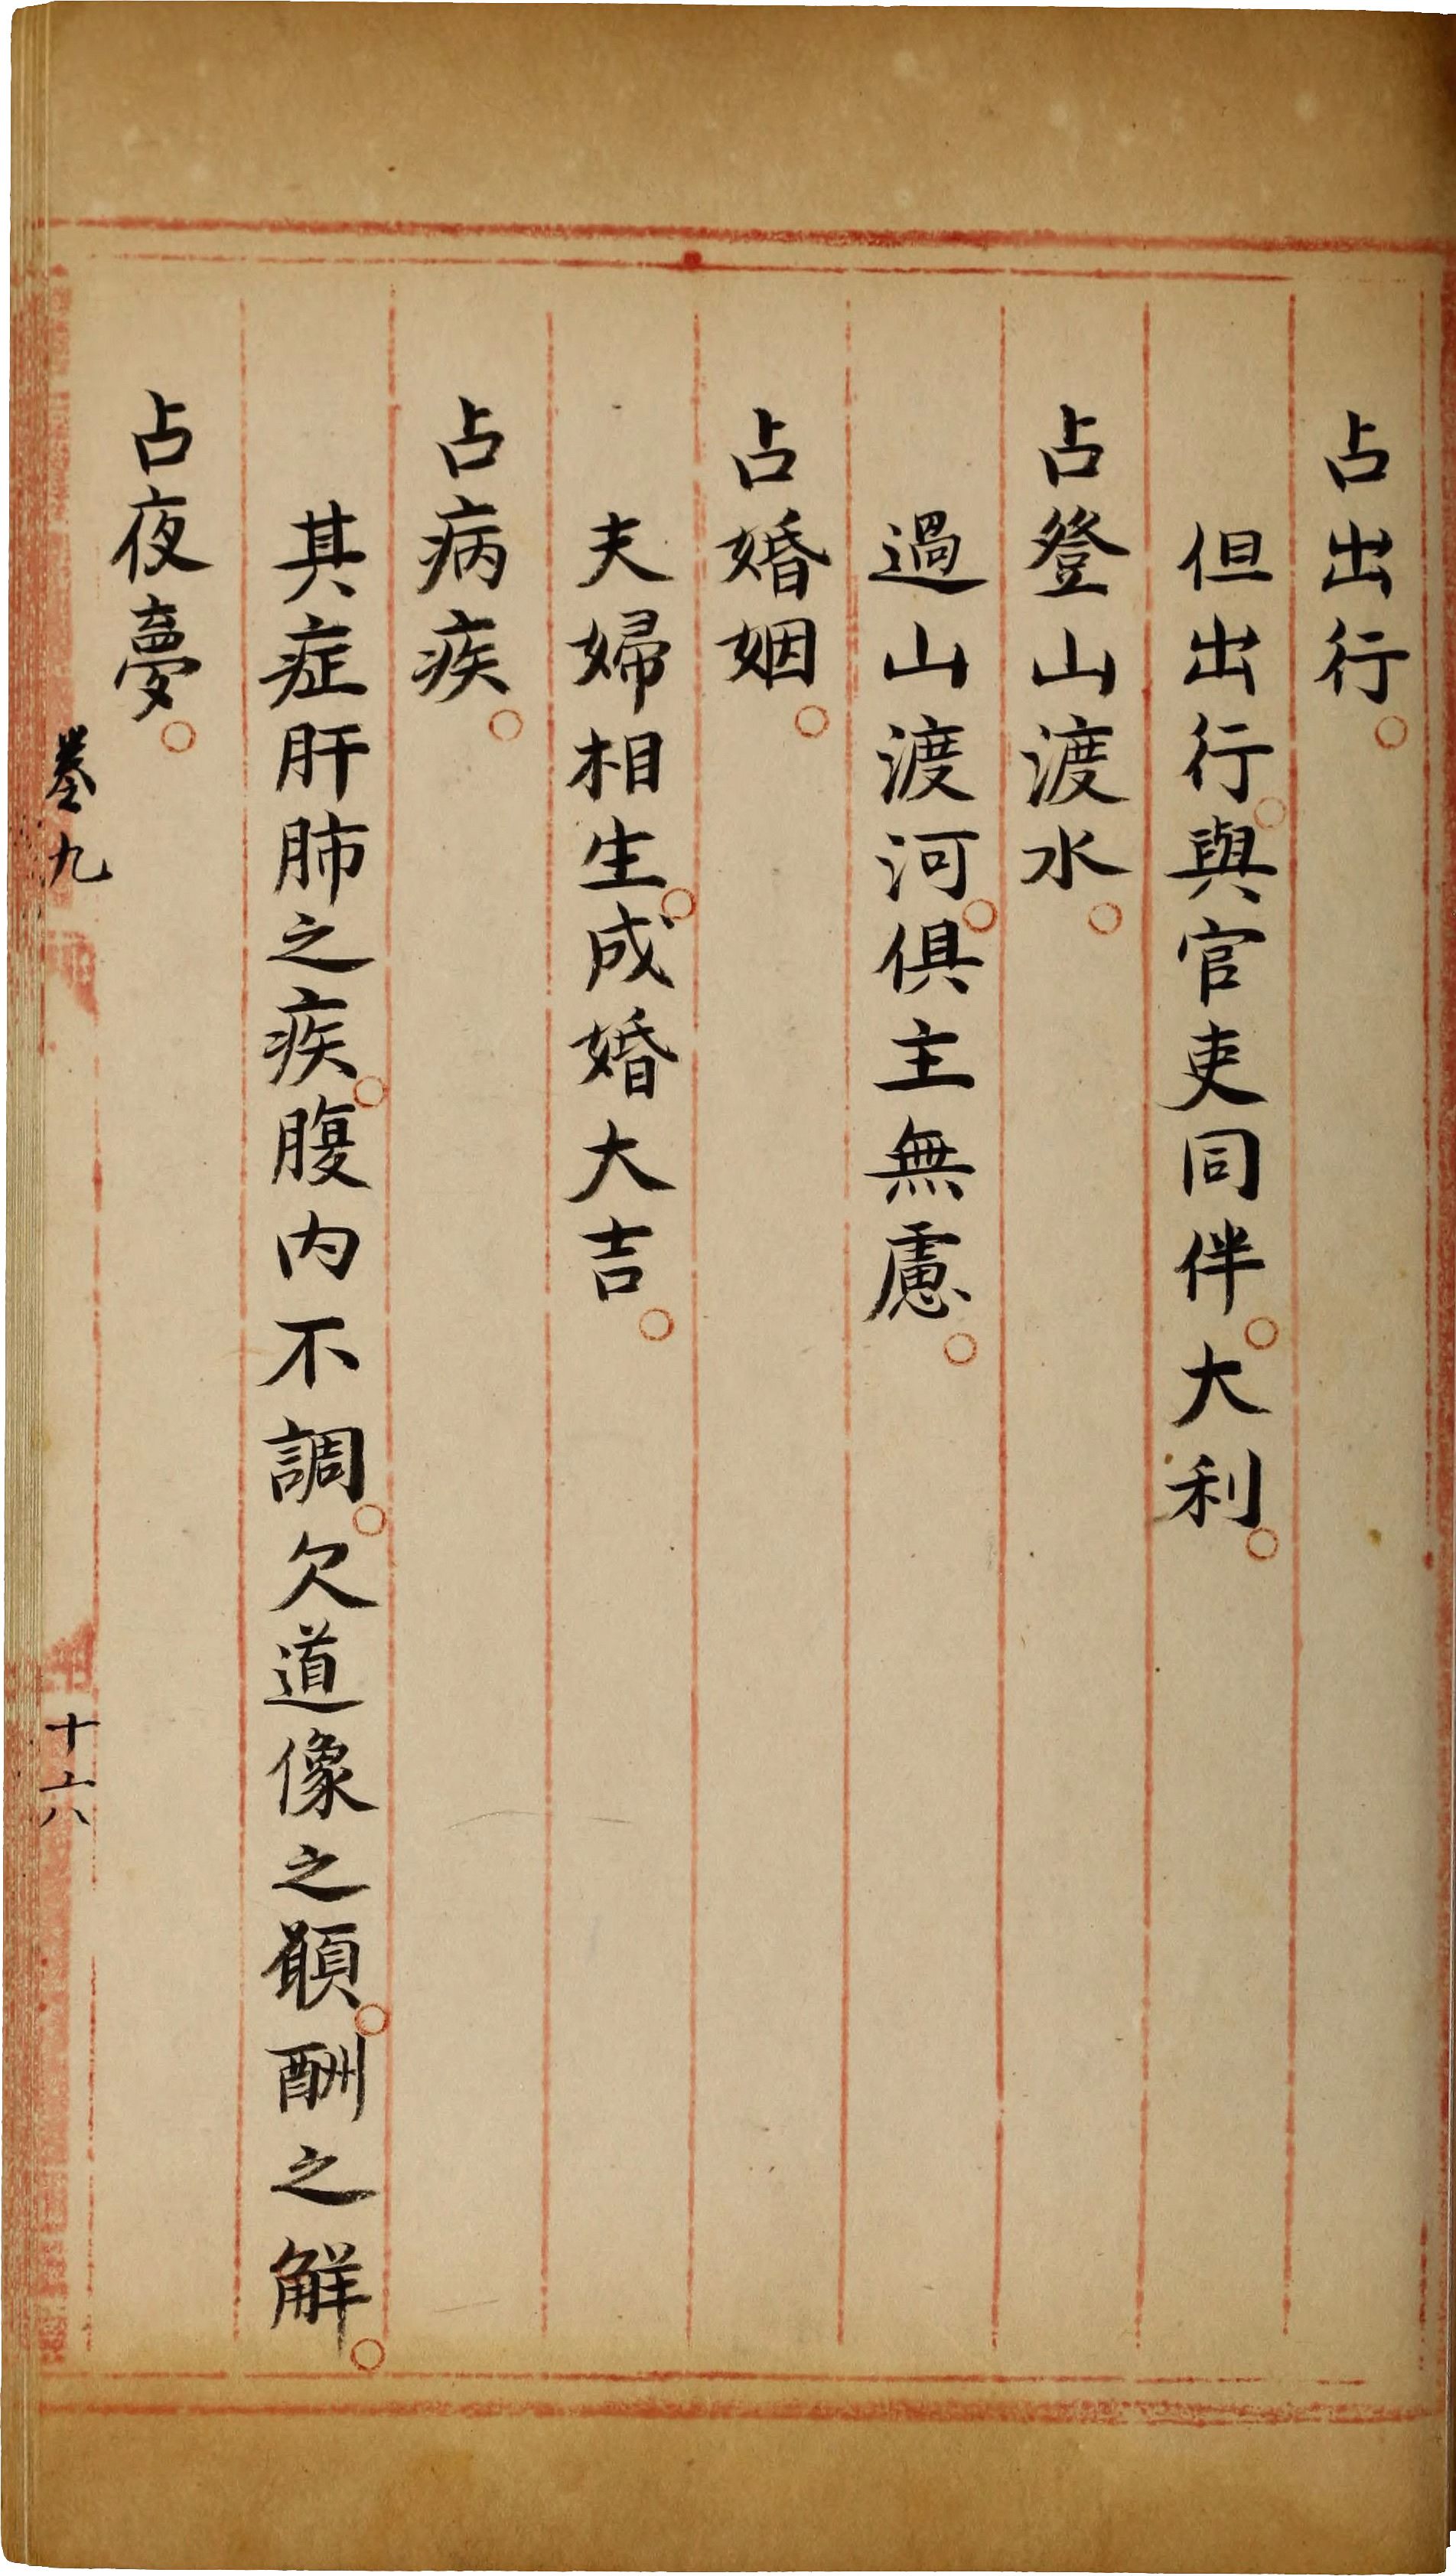 占出行。
但出行。與官吏同伴。大利。
占登山渡水。
過山渡河。俱主無慮。
占婚姻。
夫婦相生。成婚大吉。
占病疾。
其症肝肺之疾。腹内不調。欠道像之願。酬之解。
占夜夢。
卷九
十六